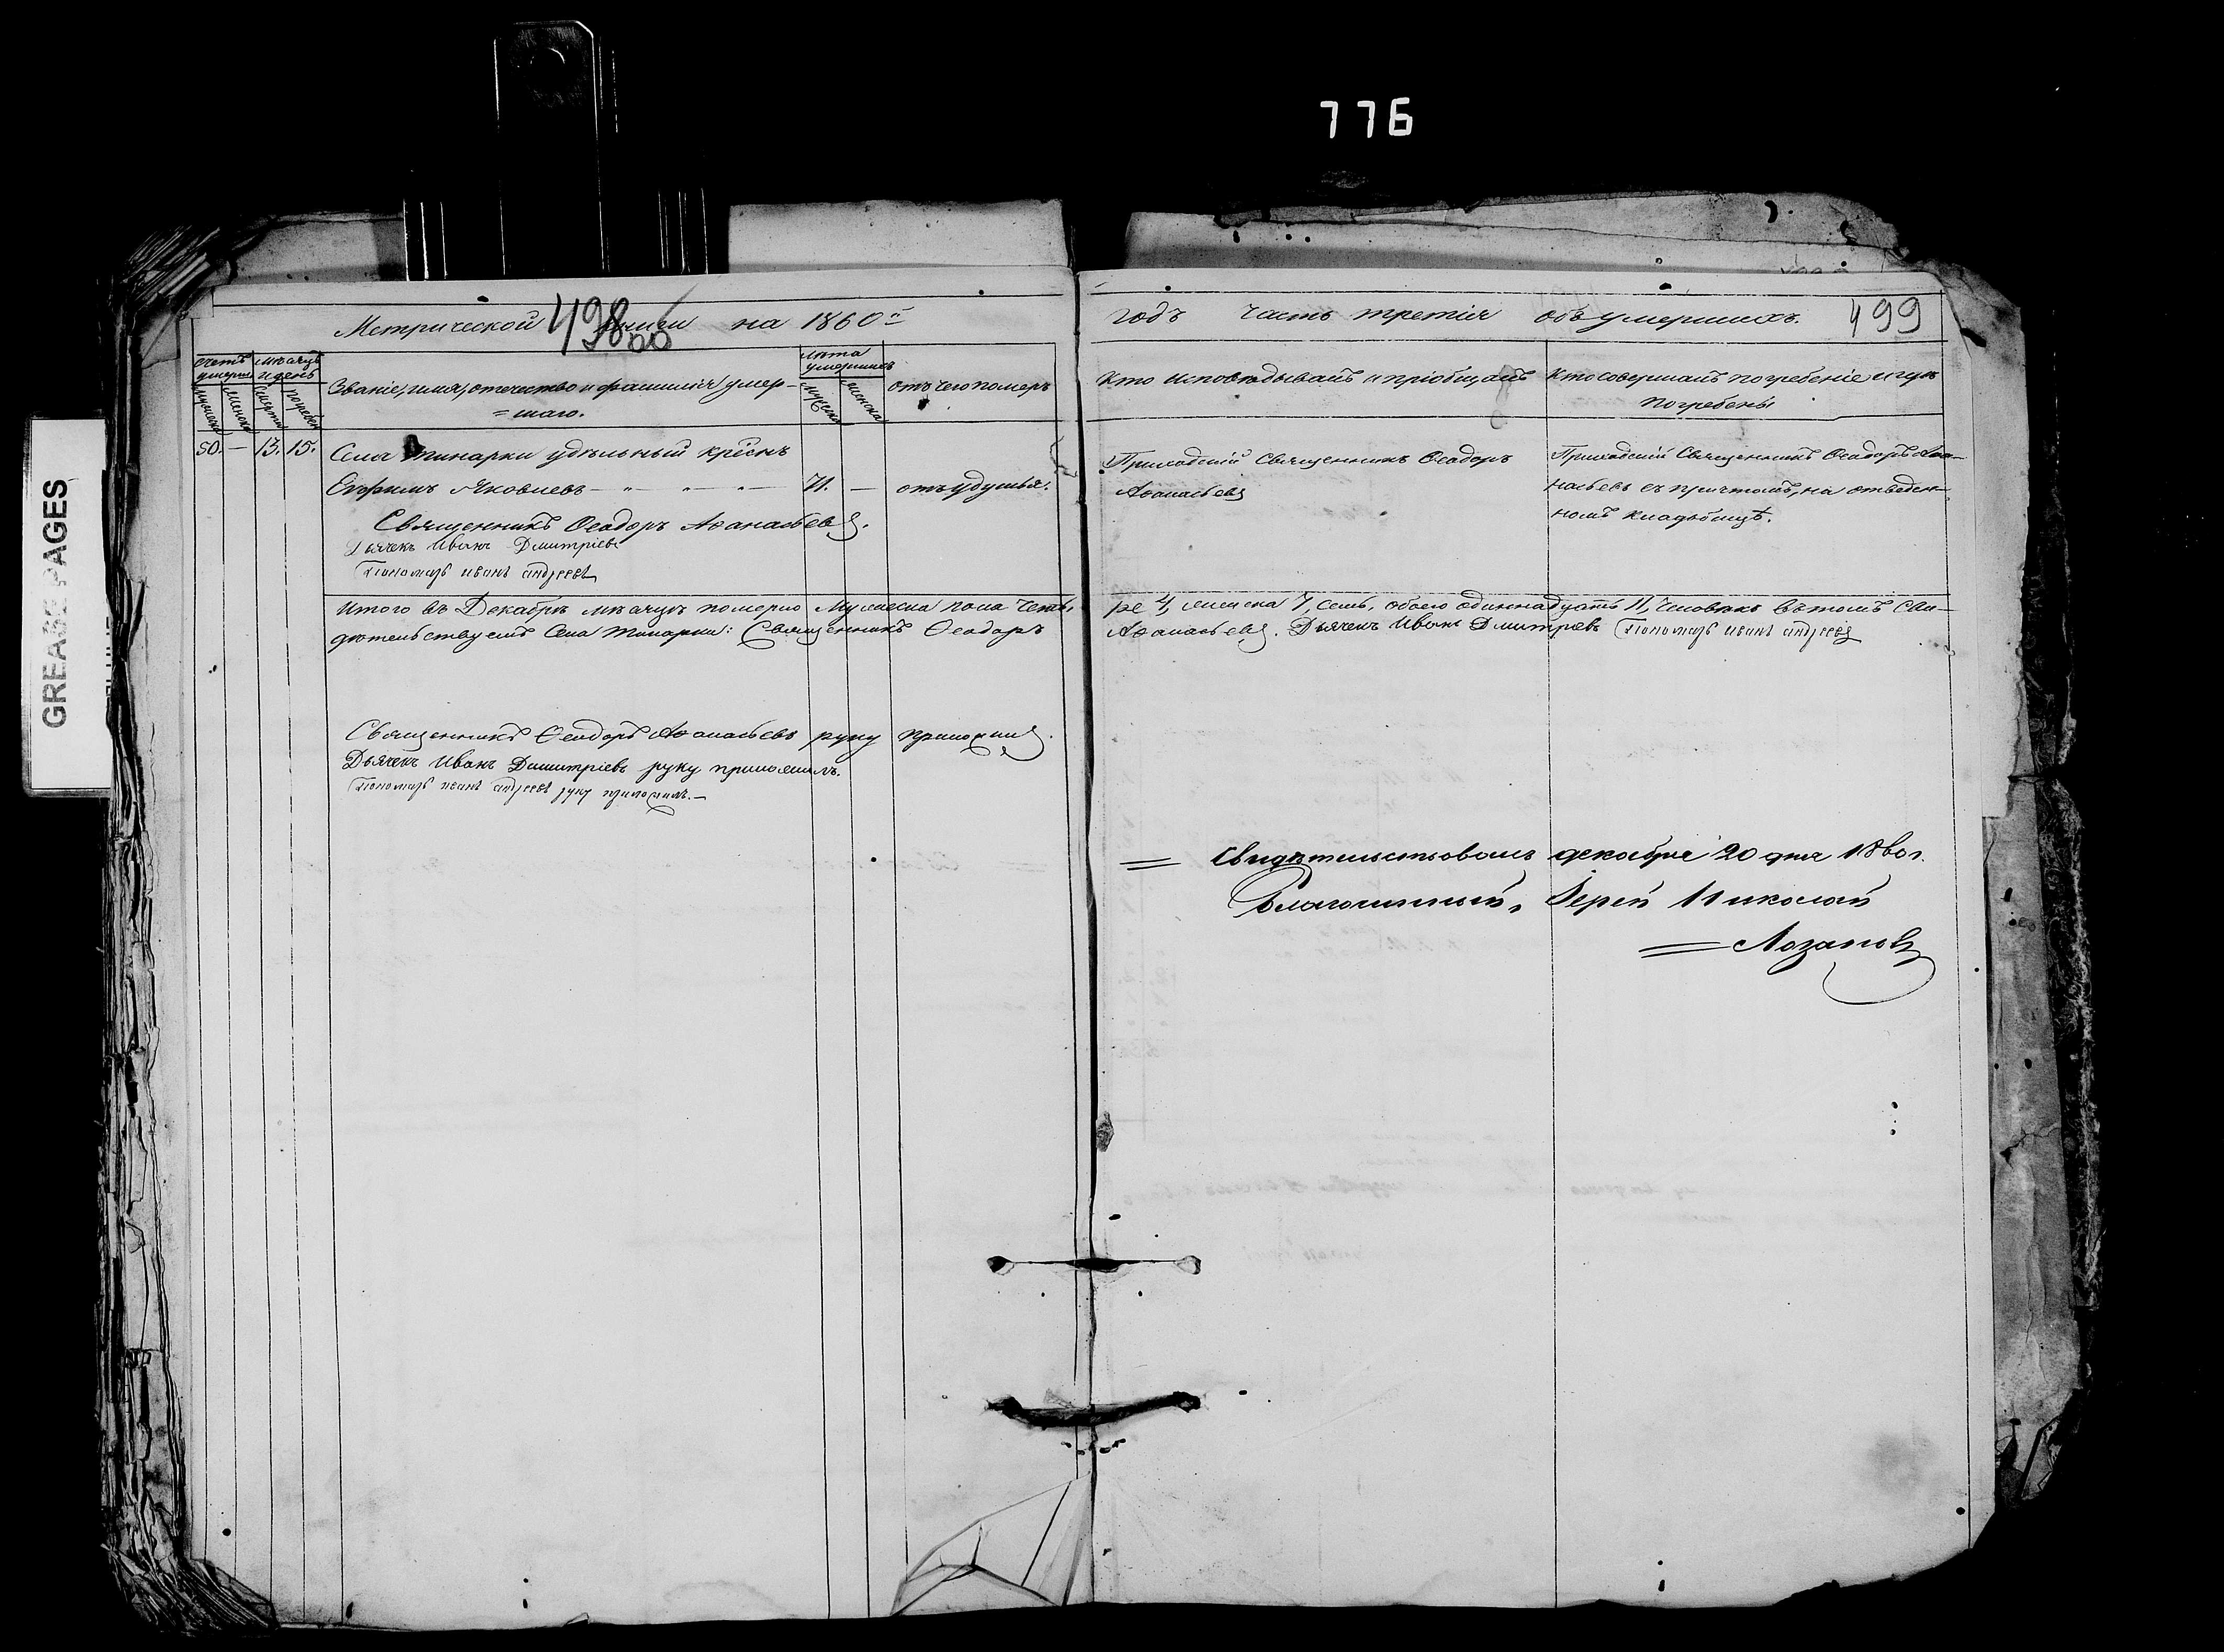 776
GREASE PAGES
498
499
Метрической книги на 1860й
годъ часть третія объ умершихъ.
счетъ умерш
мѣсяцъ и день
Званіе, имя, отечество и фамилія умер-
=шаго.
лѣта умершихъ
отъ чего померъ
мужеска
женска
смерти
погребен
мужеска
женска
Кто исповѣдывалъ и пріобщалъ
Кто совершалъ погребеніе и гдѣ
погребены
50. — 13. 15.
Села Тинарки удѣльный крест҃нъ
Евфимъ Яковлевъ — „ — „ — „ — 71. — отъ удушья.
Приходскій Священникъ Ѳеодоръ
Аѳанасьевъ
Приходскій Священникъ Ѳеодоръ Аѳа-
насьевъ съ причтомъ, на отведен-
номъ кладбищѣ.
Священникъ Ѳеодоръ Аѳанасьевъ.
Дьячекъ Иванъ Дмитріевъ
Пономарь иванъ андреевъ
Итого въ Декабрѣ мѣсяцѣ померло Мужеска пола четы-
ре 4, женска 7, семь, обоего одиннадцать 11, человѣкъ въ томъ сви-
дѣтельствуемъ Села Тинарки: Священникъ Ѳеодоръ
Аѳанасьевъ. Дьячекъ Иванъ Дмитріевъ Пономарь иванъ андреевъ
Священникъ Ѳеодоръ Аѳанасьевъ руку приложилъ.
Дьячекъ Иванъ Димитріевъ руку приложилъ.
Пономарь иванъ андреевъ руку приложилъ. —
= Свидѣтельствовалъ декабря 20 дня 1860 г.
Благочинный, Іерей Николай
= Лозановъ